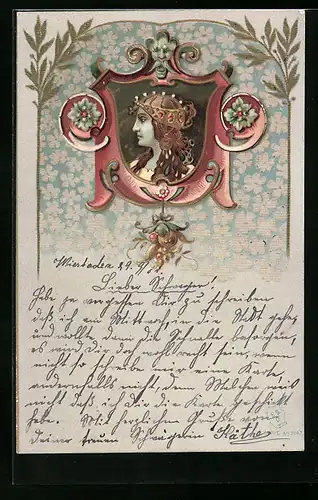 Wiesbaden 29.
Lieber Schwager!
Habe ja vergessen Dir zu schreiben
daß ich am Mittwoch, in die Stadt gehe
und wollte dann die Schnalle besorgen,
es wird Dir doch wohl recht sein, wenn
nicht so schreibe mir eine Karte,
andernfalls nicht, denn Melchen weiß
nicht daß ich Dir die Karte geschickt
habe. Mit herzlichen Gruße von
deiner treuen Schwägerin Käthe